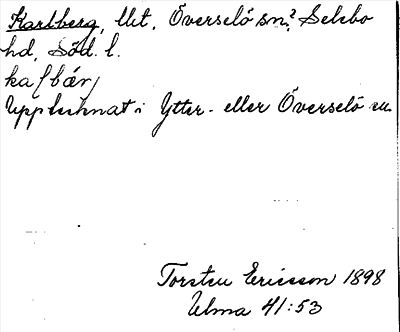 Karlberg, lht, Överselö sn? Selebo
hd, Söd. l.
ka(bær)
Upptecknat i Ytter- eller Överselö sn.
Torsten Ericsson 1898
Ulma 41:53